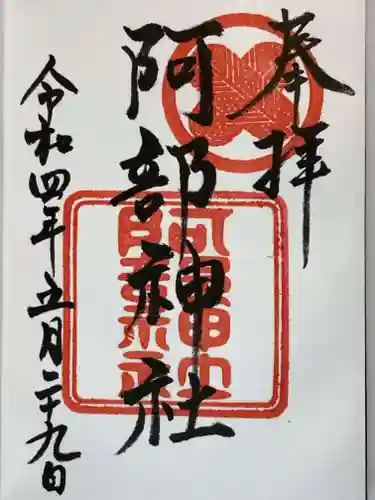 奉拝
阿部神社
阿部神社
令和四年五月二十九日